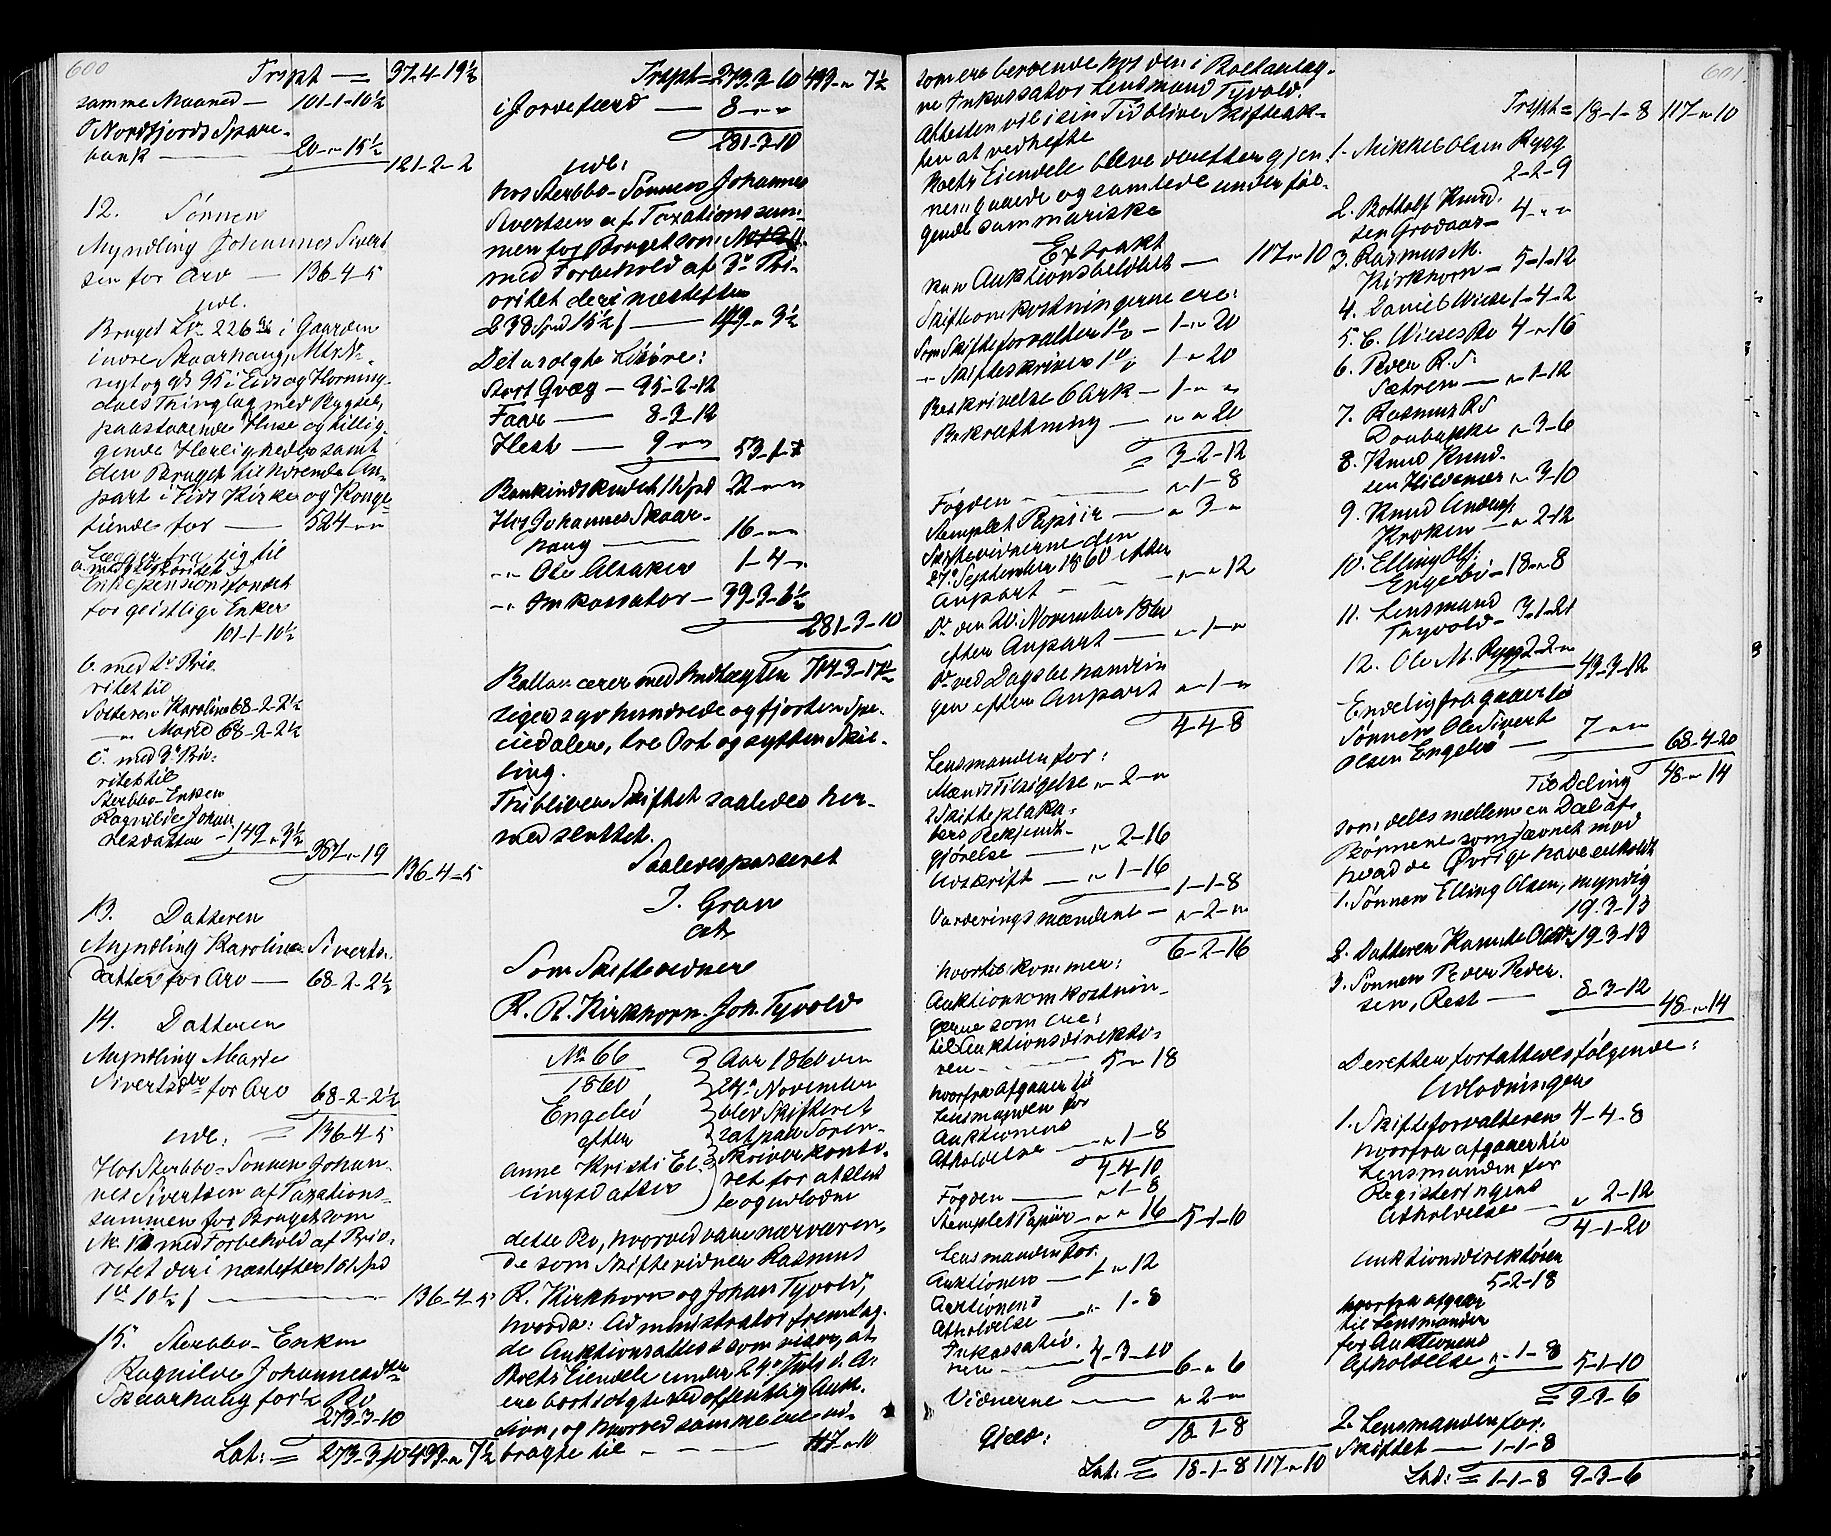 600
Trspt = 97-4-19½
samme Maaned - 101-1-10½
Nordfjords Spare-
bank - 20-"-15½
121-2-2
12. Sønnen
Myndling Johannes Sivert
sen for Arv - 136-4-5
udl.
Bruget Lr 226 i Gaarden
indre Skaarhaug, Mtr. Nr.
nyt og gl. 95 i Eids og Horning-
dals Thinglag med Bygsel,
paastaaende Huse og tillig-
gende Herligheder samt
den Bruget tilhørende An-
part i Eids Kirke og Konge
tiende for - 524-"-"
Lægger fra sig til
a. med 1ste Prioritet
Enkepensionsfondet
for geistlige Enker
101-1-10½
b. med 2d Prio-
ritet til
Søsteren Karoline 68-2-2½
-"- Marie 68-2-2½
c. med 3d Prio-
ritet til
Sterbbo-Enken
Ragnilde Johan
nesdatter - 149-"-3½
387-"-19
136-4-5
13. Datteren
Myndling Karoline Siverts-
datter for Arv - 68-2-2½
14. Datteren
Myndling Marie
Sivertsdtr for Arv 68-2-2½
udl: = 136-4-5
Hos Sterbbo-Sønnen Johan-
nes Sivertsen af Taxations-
summen for Bruget som
Nr. 12 med Forbehold af Prio-
ritet deri næstefter 101 Spd
1 10½ ẞ - 136-4-5
15. Sterbbo-Enken
Ragnilde Johannesdtr
Skaarhaug for ½ Bo
273-3-10
Lat: = 273-3-10 433-"-7½
Trspt = 273-3-10 433-"-7½
i Jordefærd - 8-"-"
281-3-10
udl:
hos Sterbbo-Sønnen Johannes
Sivertsen af Taxationssum-
men for Bruget som Nr 12
med Forbehold af 3d Pri-
oritet deri næstefter
238 Spd 15½ ẞ - 149-"-3½
Det usolgte Løsøre:
Stort Qvæg - 35-2-12
Faar - 8-3-12
Hest - 9-"-"
53-1-"
Bankindskudet 1 Spd 22-"-"
Hos Johannes Skaar-
haug - 16-"-"
-"- Ole Alsaker 1-4-"
-"- Inkassator - 39-3-6½
281-3-10
Ballancerer med Indtægten 714-3-17½
siger syv hundrede og fjorten Spe-
ciedaler, tre Ort og sytten Skil-
ling.
Thi bliver Skiftet saaledes her-
med sluttet.
Saaledes passeret
J. Gran
Som Skiftevidner
R. R. Kirkhorn. Joh. Tyvold
No 66
1860
Engebø
efter
Anne Kristi El-
lingsdatter
Aar 1860 den
24de November
blev Skifteret
sat paa Soren-
skriverkonto-
ret for at slut-
te og udlodde
dette Bo, hvorved vare nærværen-
de som Skiftevidner Rasmus
R. Kirkhorn og Johan Tyvold,
hvorda: Administrator fremlag-
de Auktionsattest som viser, at
Boets Eiendele under 24de Juli d. A.
ere bortsolgte ved offentlig Auk-
sion, og hvorved samme ere ud-
bragte til - 117-"-10
somere beroende hos den i Boet antag-
ne Inkassator Lensmand Tyvold.
Attesten vil i sin Tid blive Skifteak-
ten at vedhefte
Boets Eiendele bleve derefter gjen-
nemgaaede og samlede under føl-
gende summariske
Extrakt
kun Auktionsbeløbet - 117-"-10
Skifteomkostningerne ere:
Som Skifteforvalter 1% - 1-"-20
-"- Skifteskriver 1% 1-"-20
Beskrivelse 6 Ark - 1-"-"
Bekræftning - "-"-20
= 3-2-12
Fogden - "-1-8
Stemplet Papiir - "-3-"
Skiftevidnerne den
27de September 1860 efter
Anpart - "-"-12
Do den 20. November 1860
efter Anpart - "-1-"
Do ved Dagsbehandlin
gen efter Anpart "-1-"
4-4-8
Lensmanden for:
Mænds Tilsigelse "-2-"
2 Skifteplaka-
ters Bekjendt-
gjørelse - "-2-16
Udskrift - "-1-16
1-1-8
Vurderingsmændene - "-2-"
6-2-16
hvortil kommer:
Auktionsomkostnin-
gerne som ere:
til Auktionsdirektø-
ren - 5-"-18
hvorfra afgaaer til
Lensmanden for
Auktionens
Afholdelse - "-1-8
4-4-10
Fogden - "-1-8
Stemplet Papiir - "-"-16
5-1-10
Lensmanden for:
Auktionen - 1-"-12
Auktionens
Afholdelse - "-1-8
Inkassatio-
nen - 4-3-10
6-"-6
Vidnerne - "-2-"
18-1-8
Gjæld:
Lat: = 18-1-8 117-"-10
601
Trspt = 18-1-8 117-"-10
1. Mikkel Olsen Rygg
2-2-9
2. Bottolf Knud-
sen Grodaas - 4-"-"
3. Rasmus M.
Kirkhorn - 5-1-12
4. Daniel Wiese 1-4-2
5. C. Wieses Bo 4-"-16
6. Peder R. S.
Sætren - "-1-12
7. Rasmus R S
Doubakke "-3-6
8. Knud Knud-
sen Hildenæs "-3-10
9. Knud Anders.
Kroken - "-2-12
10. Elling Ols:
Engebø - 18-"-8
11. Lensmand
Thyvold - 3-1-21
12. Ole M. Rygg 2-2-"
43-3-12
Endelig fragaaer til
Sønnen Ole Sivert
Olsen Engebø - 7-"-"
68-4-20
Til Deling 48-"-14
som deles mellem en Deel af
Børnene som jævnet mod
hvad de Øvrige have erholdt
1. Sønnen Elling Olsen, myndig
19-3-13
2. Datteren Kamilde Olsdtr 19-3-13
3. Sønnen Peder Peder-
sen, Rest - 8-3-12
48-"-14
Derefter forfattedes følgende:
Udlodninger
1. Skifteforvalteren 4-4-8
hvorfra afgaaer til
Lensmanden for
Registeringens
Afholdelse - "-2-12
4-1-20
Auktionsdirektøren
5-2-18
hvorfra afgaar
til Lensmanden
for Auktionens
Afholdelse "-1-8
5-1-10
= 9-3-6
2. Lensmanden for:
Skiftet - 1-1-8
Lat: = 1-1-8 9-3-6